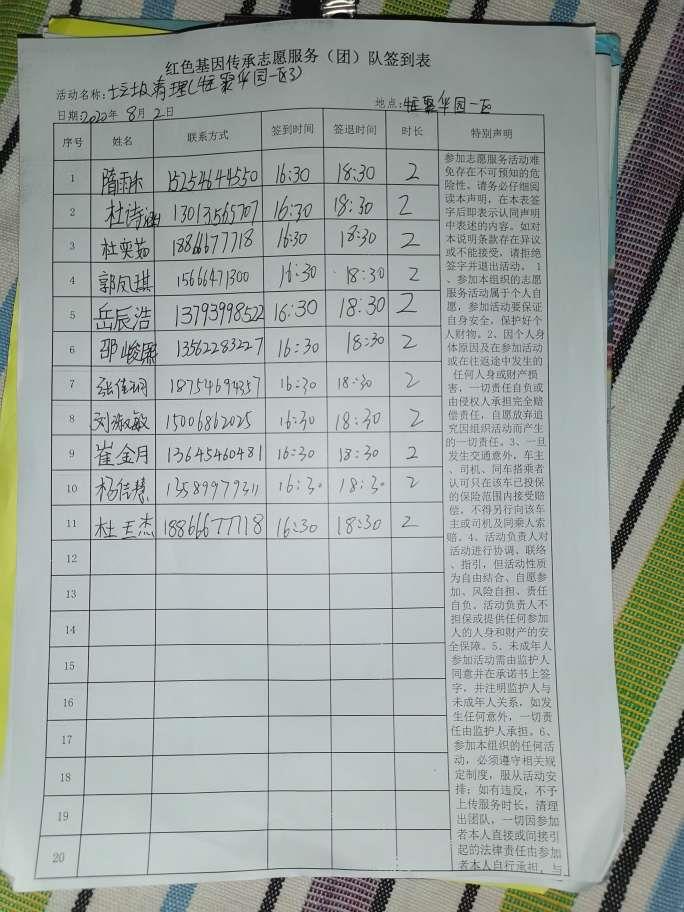 红色基因传承志愿服务（团）队签到表
活动名称：垃圾清理(恒聚华园一区3)
日期：2020年 8月 2日 地点：恒聚华园一区
序号 姓名 联系方式 签到时间 签退时间 时长 特别声明
1 隋雨 15254644550 16:30 18:30 2
2 杜诗涵 13013565707 16:30 18:30 2
3 杜奕茹 18866677718 16:30 18:30 2
4 郭凤琪 15666471300 16:30 18:30 2
5 岳辰浩 13793998522 16:30 18:30 2
6 邵峻熙 13562283227 16:30 18:30 2
7 张佳 18754694357 16:30 18:30 2
8 刘淑敏 15006862025 16:30 18:30 2
9 崔金月 13645460481 16:30 18:30 2
10 杨佳慧 13589979311 16:30 18:30 2
11 杜玉杰 18866677718 16:30 18:30 2
12
13
14
15
16
17
18
19
20
参加志愿服务活动难
免存在不可预知的危
险性。请务必仔细阅
读本声明，在本表签
字后即表示认同声明
中表述的内容。如对
本说明条款存在异议
或不能接受，请拒绝
签字并退出活动。 1
、参加本组织的志愿
服务活动属于个人自
愿，参加活动要保证
自身安全，保护好个
人财物。2、因个人身
体原因及在参加活动
或在往返途中发生的
任何人身或财产损
害，一切责任自负或
由侵权人承担完全赔
偿责任，自愿放弃追
究因组织活动而产生
的一切责任。3、一旦
发生交通意外，车主
、司机、同车搭乘者
认可只在该车已投保
的保险范围内接受赔
偿，不得另行向该车
主或司机及同乘人索
赔。4、活动负责人对
活动进行协调、联络
、指引，但活动性质
为自由结合、自愿参
加、风险自担、责任
自负。活动负责人不
担保或提供任何参加
人的人身和财产的安
全保障。5、未成年人
参加活动需由监护人
同意并在承诺书上签
字，并注明监护人与
未成年人关系，如发
生任何意外，一切责
任由监护人承担。6、
参加本组织的任何活
动，必须遵守相关规
定制度，服从活动安
排；如有违反，不予
上传服务时长，清理
出团队，一切因参加
者本人直接或间接引
起的法律责任由参加
者本人自行承担，与